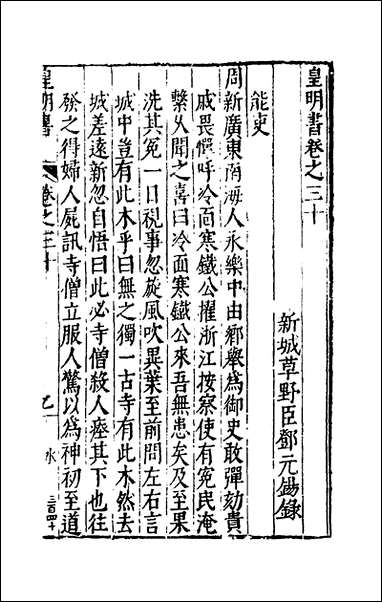 皇明書卷之三十
新城草野臣鄧元錫錄
能吏
周新廣東南海人永樂中由鄉舉爲御史敢彈劾貴
戚畏憚呼冷面寒鐵公擢浙江按察使有冤民淹
繫久聞之喜曰冷面寒鐵公來吾無患矣及至果
洗其冤一日視事忽旋風吹異葉至前問左右言
城中豈有此木乎曰無之獨一古寺有此木然去
城差遠新忽自悟曰此必寺僧殺人瘞其下也往
發之得婦人屍訊寺僧立服人驚以爲神初至道
皇明書
卷之三十
永
三百四十